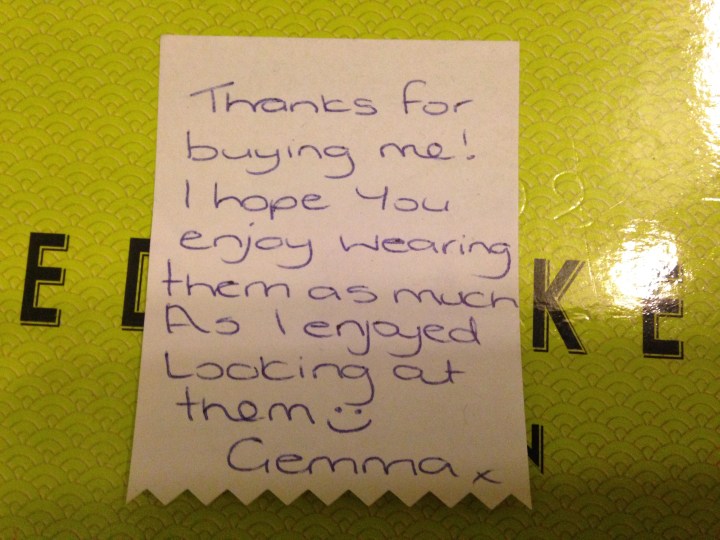 Thanks for
buying me!
I hope you
enjoy wearing
them as much
As I enjoyed
Looking at
them :)
Gemma x